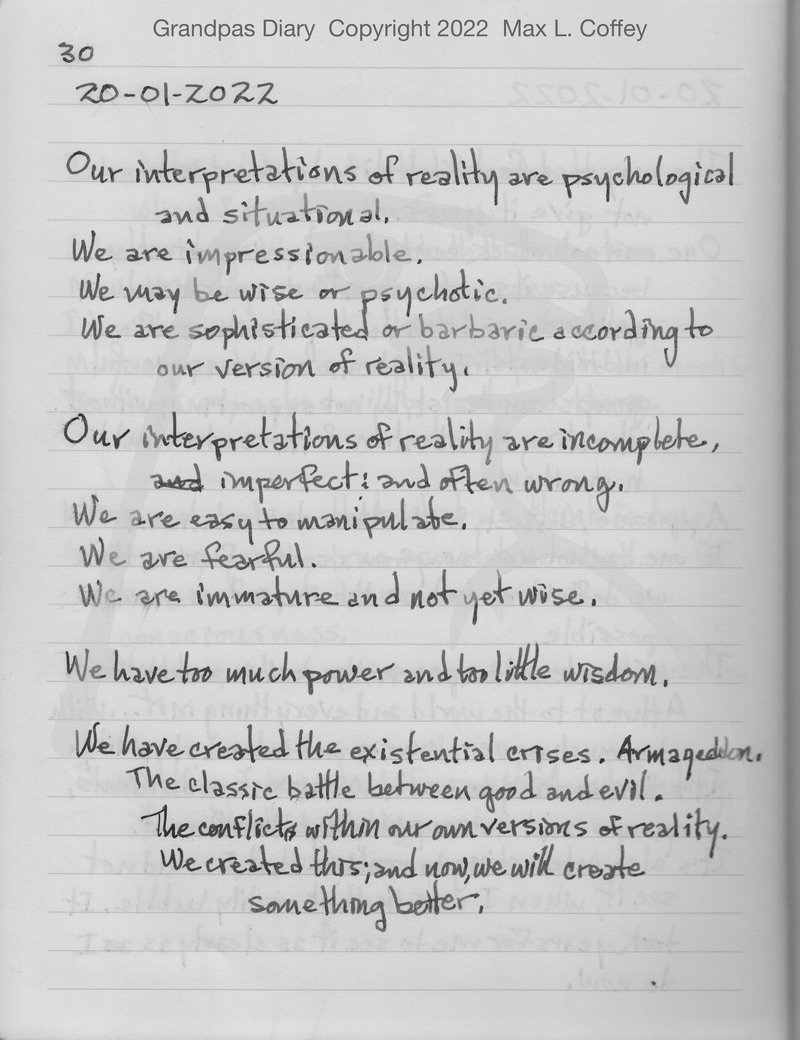 Grandpas Diary Copyright 2022 Max L. Coffey
30
20-01-2022
Our interpretations of reality are psychological
and situational.
We are impressionable.
We may be wise or psychotic.
We are sophisticated or barbaric according to
our version of reality.
Our interpretations of reality are incomplete,
and imperfect; and often wrong.
We are easy to manipulate.
We are fearful.
We are immature and not yet wise.
We have too much power and too little wisdom.
We have created the existential crises. Armageddon.
The classic battle between good and evil.
The conflicts within our own versions of reality.
We created this; and now, we will create
something better.